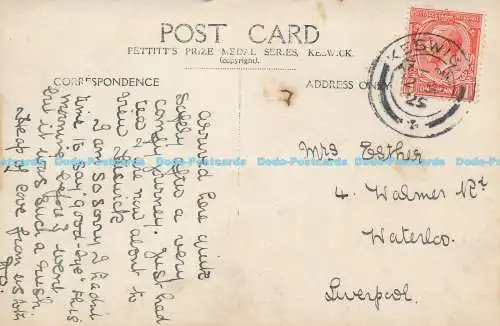 POST CARD
PETTITT'S PRIZE MEDAL SERIES, KESWICK.
(copyright).
CORRESPONDENCE
ADDRESS ONLY
KESWICK
25
arrived here quite
safely after a very
comfy journey. Just had
tea & are now about to
view Keswick
I am so sorry I hadn't
time to say "Good-bye" this
morning before I went
but it was such a rush.
Heaps of love from us both
Mrs Esther
4. Walmer Rd
Waterloo.
Liverpool.
Dodo-Postcards Dodo-Postcards Dodo-Postcards Dodo-Postcards Dodo-Postcards